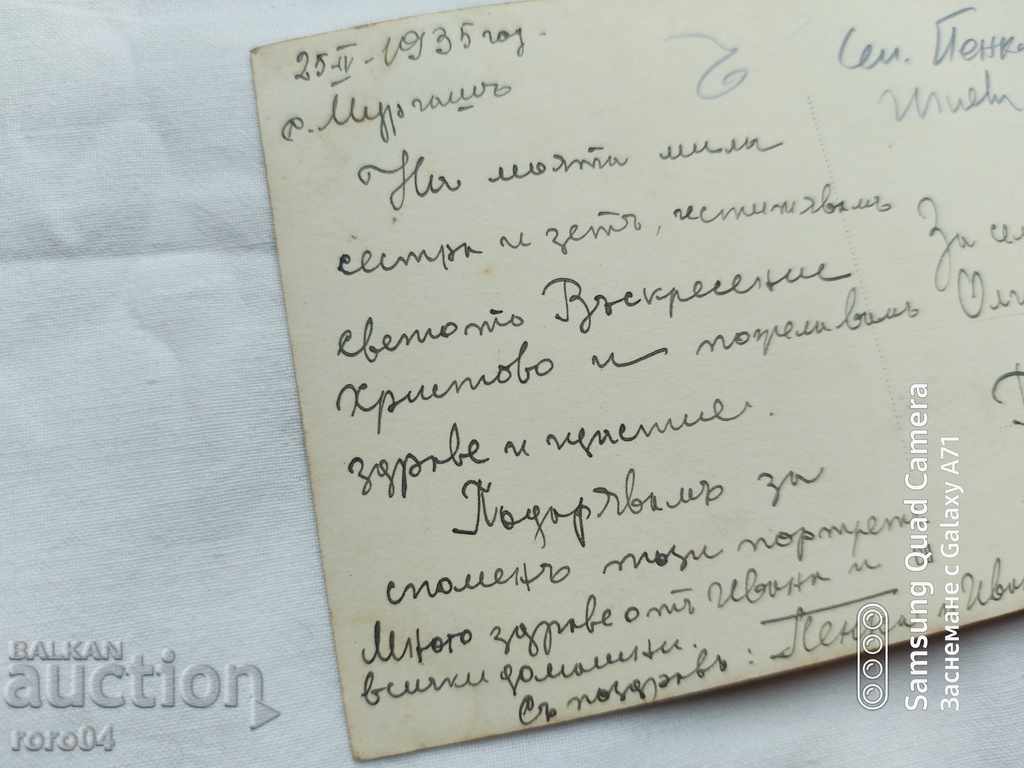 25-IV-1935 год.
с. Мургашъ
На моята мила
сестра и зетъ, честитявамъ
светото Възкресение
Христово и пожелавамъ
здраве и щастие.
Подарявамъ за
споменъ този портретъ
Много здраве отъ Ивана и
всички домашни.
Съ поздравъ: Пенка и Ива
Сем. Пенк
За сем
BALKAN
auction
roro04
Samsung Quad Camera
Заснемане с Galaxy A71